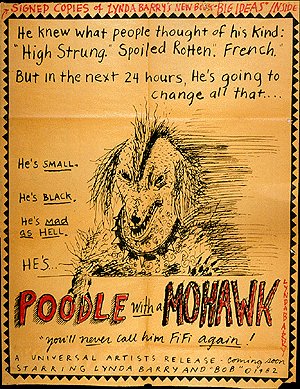 SIGNED COPIES OF LYNDA BARRY'S NEW BOOK "BIG IDEAS" INSIDE
He knew what people thought of his kind:
"High Strung." Spoiled Rotten". French."
But in the next 24 hours, He's going to
change all that....
He's SMALL.
He's BLACK.
He's mad
as HELL.
HE'S...
POODLE with a MOHAWK
"you'll never call him FiFi again!"
A UNIVERSAL ARTISTS RELEASE - coming soon
STARRING LYNDA BARRY AND "BOB" © 1982
LYNDA BARRY